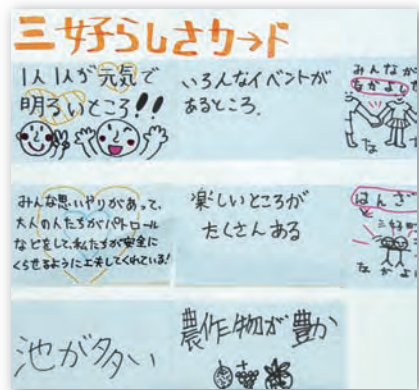 三好らしさカード
1人1人が元気で
明るいところ!!
いろんなイベントが
あるところ.
みんなが
なかよし
な
みんな思いやりがあって、
大人の人たちがパトロール
などをして、私たちが安全に
くらせるように工夫してくれている!
楽しいところが
たくさんある
はんざ
と
三好町
なかよ
池が多い
農作物が豊か